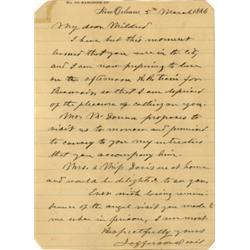 New Orleans 5th March 1886
My dear Mildred
I have but this moment
learned that you are in the city
and I am now preparing to leave
on the afternoon R.R. train for
Beauvoir, so that I am deprived
of the pleasure of calling on you.
Mr. McKenna proposes to
visit us to morrow and promised
to convey to you my entreaties
that you accompany him.
Mrs. & Miss Davis are at home
and would be delighted to see you.
Ever with loving remem-
brance of the angel visit you made
to me when in prison, I am most
Respectfully yours
Jefferson Davis